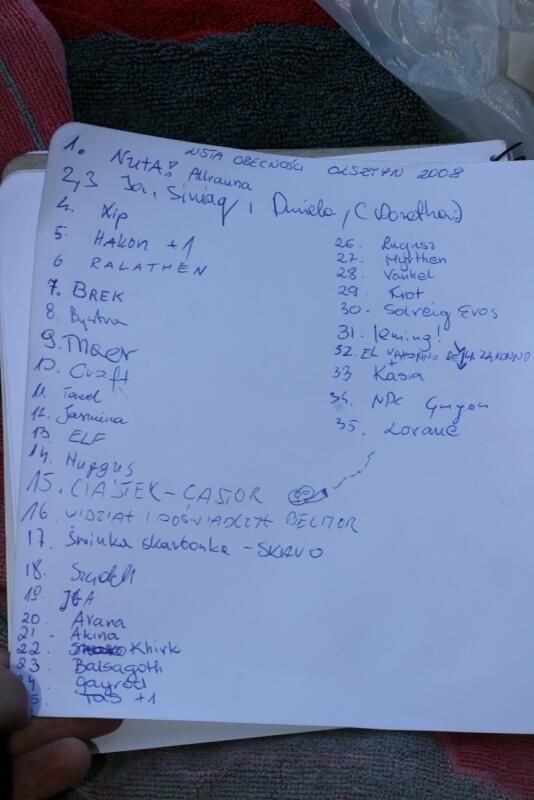 LISTA OBECNOŚCI OLSZTYN 2008
1. NUTA! Allrauna
2,3 Ja, Siniaq i Daniela, (Dorotha:)
4. Xip
5. HAKON +1
6 RALATHEN
7. BREK
8. Bystra
9. Maer
10. Craft
11. Tared
12. Jasmina
13. ELF
14. Nuggus
15. CIASTEK-CASTOR
16. WIDZIAŁ I DOŚWIADCZYŁ BELMOR
17. Świnka skarbonka - SKAVO
18.
19. JGA
20. Arana
21. Akina
22. Khirk
23. Balsagoth
24 gayrod
25. Tas +1
26.
27. Myrthen
28. Vankel
29. Krot
30. Solveig Eros
31. leming!
32. EL
33 Kasia
34. NPC
35. Lorane